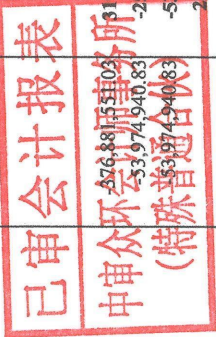 已审会计报表
中审众环会计师事务所
（特殊普通合伙）
376,881,551.03 31
-53,974,940.83 -2
-53,974,940.83 -5
2